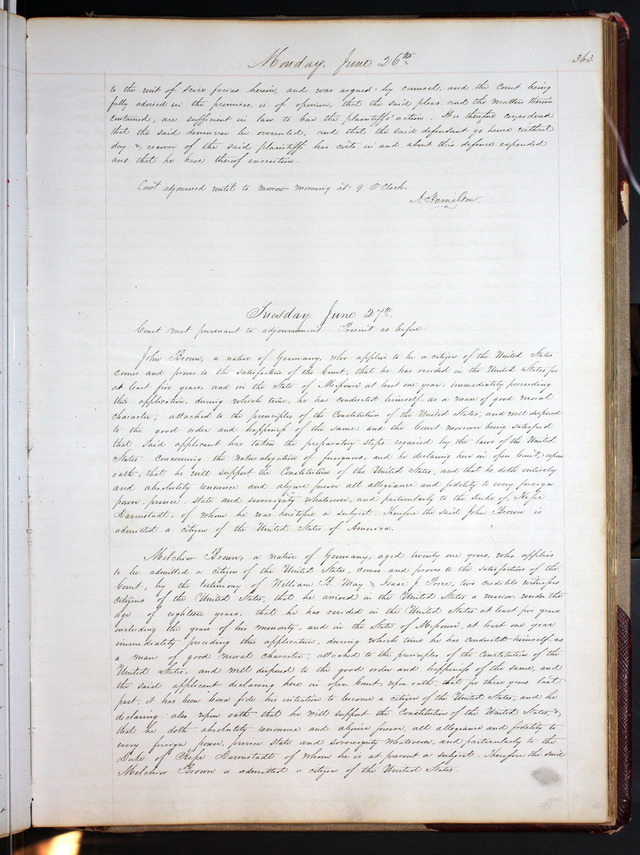 Monday, June 26th. 363
to the writ of scire facias herein, and was argued by counsel, and the Court being
fully advised in the premises, is of opinion, that the said pleas and the matters therein
contained, are sufficient in law to bar the plaintiffs action. It is therefore considered
that the said demurrer be overruled, and that the said defendant go hence without
day & recover of the said plaintiff his costs in and about this defence expended
and that he have thereof execution.
Court adjourned until to morrow morning at 9 O'Clock.
A. Hamilton.
Tuesday June 27th.
Court met pursuant to adjournment. Present as before.
John Brown, a native of Germany, who applies to be a citizen of the United States
comes and proves to the satisfaction of the Court, that he has resided in the United States for
at least five years, and in the State of Missouri at least one year immediately preceeding
this application, during which time, he has conducted himself as a man of good moral
character; attached to the principles of the Constitution of the United States, and well disposed
to the good order and happiness of the same: and the Court moreover being satisfied
that said applicant has taken the preparatory steps required by the laws of the United
States concerning the naturalization of foreigners, and he declaring here in open Court, upon
oath, that he will support the Constitution of the United States, and that he doth entirely
and absolutely renounce and abjure forever all allegiance and fidelity to every foreign
power, prince, state and sovereignty whatever, and particularly to the duke of Hesse
Darmstadt, of whom he was heretofore a subject. Therefore the said John Brown is
admitted a citizen of the United States of America.
Melchior Brown, a native of Germany, aged twenty one years, who applies
to be admitted a citizen of the United States, comes and proves to the satisfaction of the
Court, by the testimony of William B. May & Isaac J. two credible witnesses
citizens of the United States, that he arrived in the United States a minor under the
age of eighteen years: that he has resided in the United States at least five years
including the years of his minority, and in the State of Missouri, at least one year
immediately preceding this application, during which time he has conducted himself as
a man of good moral character, attached to the principles of the Constitution of the
United States, and well disposed to the good order and happiness of the same, and
the said applicant declaring here in open Court, upon oath, that for three years last
past, it has been bona fide his intention to become a citizen of the United States, and he
declaring also upon oath that he will support the Constitution of the United States &,
that he doth absolutely renounce and abjure forever, all allegiance and fidelity to
every foreign power, prince State and sovereignty whatever, and particularly to the
Duke of Hesse Darmstadt of whom he is at present a subject. Therefore the said
Melchior Brown is admitted a citizen of the United States.